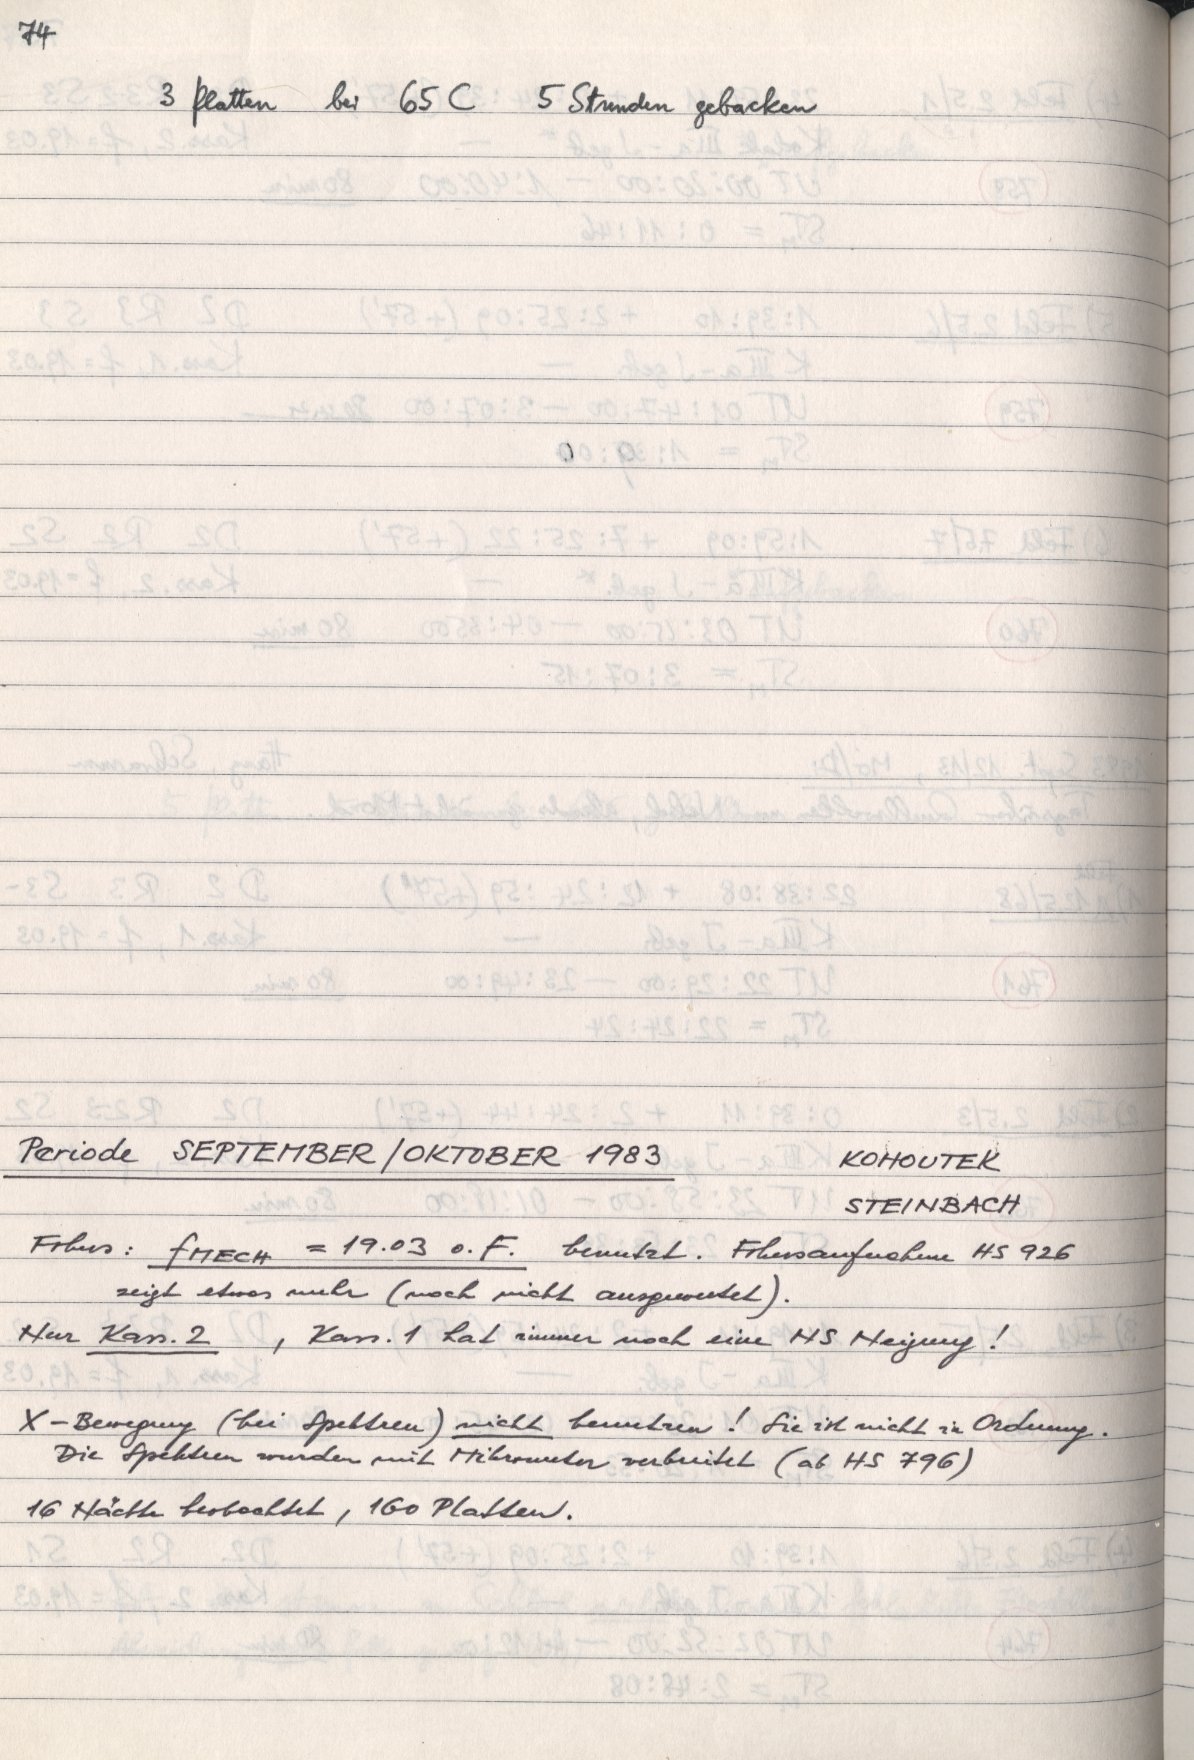 74
3 Platten bei 65 C 5 Stunden gebacken
Periode SEPTEMBER/OKTOBER 1983 KOHOUTEK
STEINBACH
Fokus: fMECH = 19.03 o.F. benutzt. Fokusaufnahme HS 926
zeigt etwas mehr (noch nicht ausgewertet).
Nur Kass. 2 , Kass. 1 hat immer noch eine NS Neigung!
X-Bewegung (bei Spektren) nicht benutzen! Sie ist nicht in Ordnung.
Die Spektren wurden mit Mikrometer verbreitet (ab HS 796)
16 Nächte beobachtet, 160 Platten.